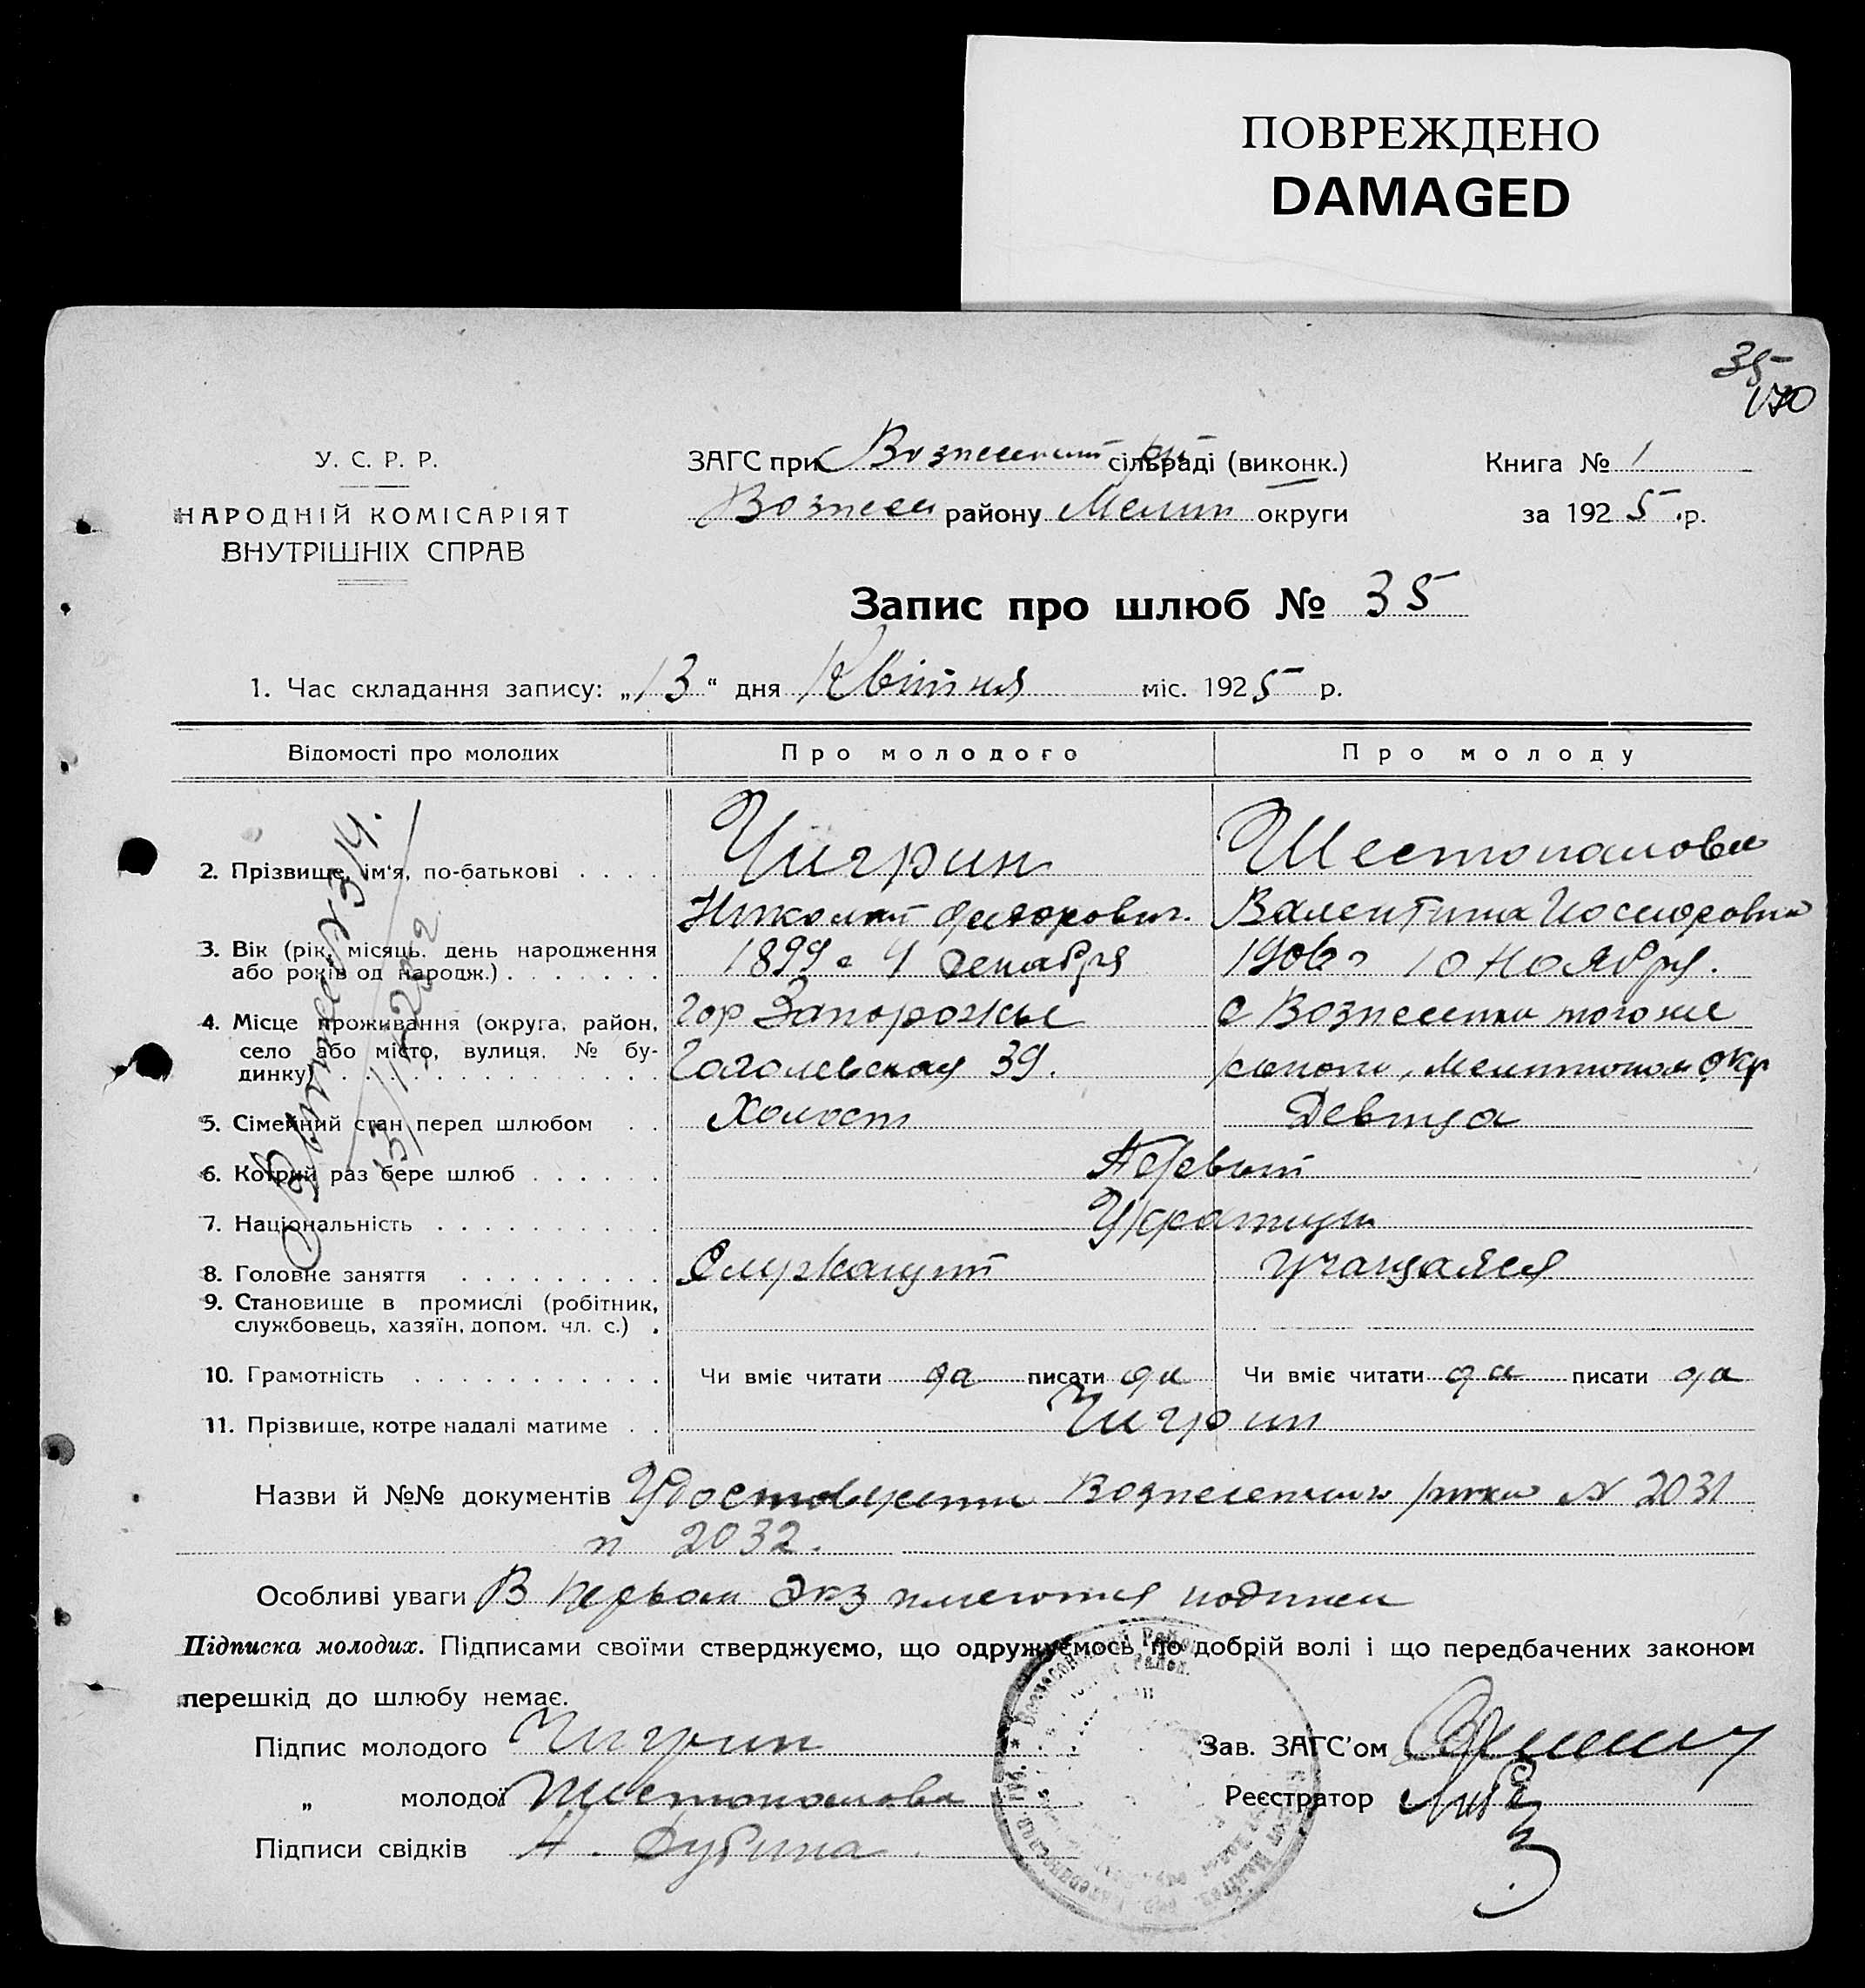 ПОВРЕЖДЕНО
DAMAGED
35
170
У. С. Р. Р.
НАРОДНІЙ КОМІСАРІЯТ
ВНУТРІШНІХ СПРАВ
ЗАГС при Вознесенск сільраді (виконк.)
Вознесен району Мелит округи
Книга № 1
за 1925 р.
Запис про шлюб № 35
1. Час складання запису: „13“ дня Квітня міс. 1925 р.
Відомості про молодих
Про молодого
Про молоду
2. Прізвище, ім'я, по-батькові
Чигрин
Николай Федорович.
Шестопалова
Валентина Иосифовна
3. Вік (рік, місяць. день народження
або років од народж.)
1899 г 4 декабря
1906 г 10 Ноября.
4. Місце проживання (округа, район,
село або місто, вулиця, № бу-
динку)
гор Запорожье
Гоголевская 39.
с Вознесенка того же
района, Мелитопол окр
5. Сімейний стан перед шлюбом
Холост
Девица
6. Котрий раз бере шлюб
Первый
7. Національність
Украинцы
8. Головне заняття
Служащий
учащаяся
9. Становище в промислі (робітник,
службовець, хазяїн, допом. чл. с.)
10. Грамотність
Чи вміє читати да писати да
Чи вміє читати да писати да
11. Прізвище, котре надалі матиме
Чигрин
Выпис N 314.
13/1
Назви й №№ документів Удостоверения Вознесенского рика N 2031
и 2032.
Особливі уваги В первом экз имеются подписи
Підписка молодих. Підписами своїми стверджуємо, що одружуємось по добрій волі і що передбачених законом
перешкід до шлюбу немає.
Підпис молодого Чигрин
„ молодої Шестопалова
Підписи свідків А. Дубина
Зав. ЗАГС'ом
Реєстратор